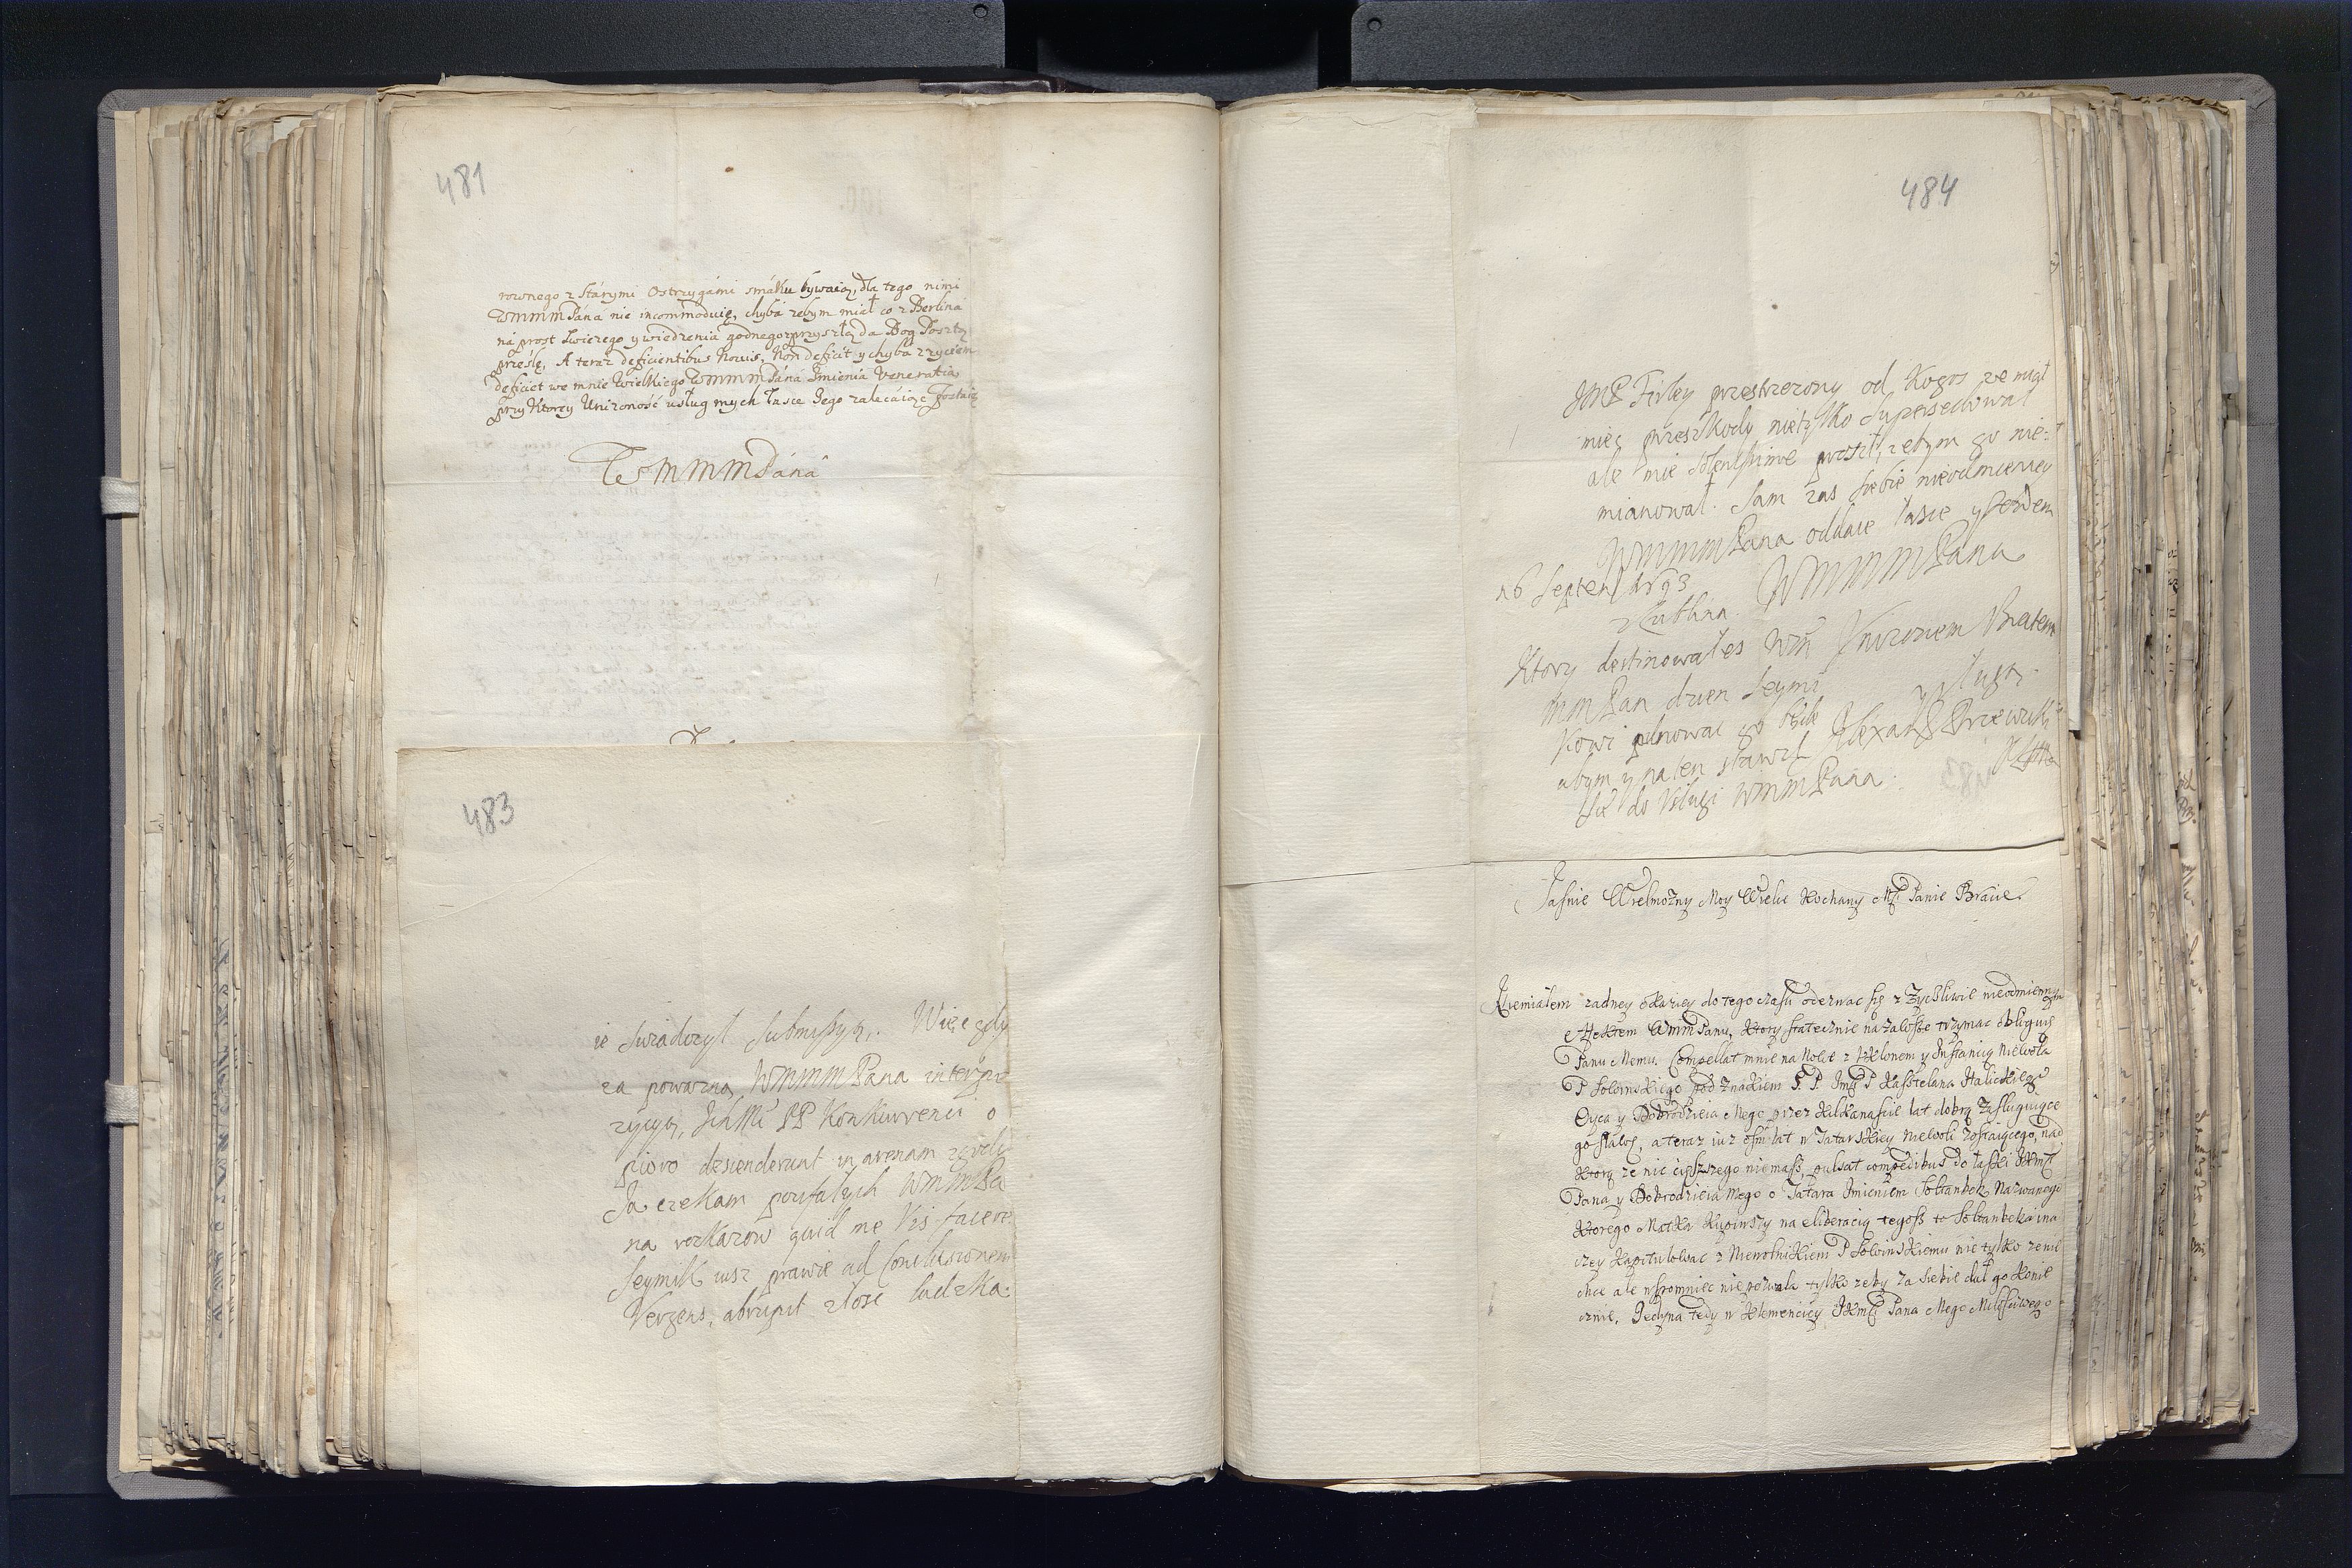 481
rownego z Stárymi Ostrzygámi smáku bywaią, dla tego nimi
WMMMPáná nie incommoduię, chybá zebym miał co z Berliná
ná prost swiezego y wiedzenia godnego przyszłą da Bog Posztą
prześlę. A teraz deficientibus Novis, Non deficit y chybá z zyciem
deficiet we mnie Wielkiego WMMMPáná Imienia Veneratia
przy Ktorey Unizoność usług mych łasce Jego zalecáiąc zostaię
WMMMPáná
483
ie swiadczył submissyą. Więc gdy
za powazną WMMMPana interpo
zycyą, Ich PP Konkurrenci o
piero descenderunt in arenam
Ja czekam poufałych WMMPa
na rozkazow quid me vis facere
Seymik iusz prawie ad Conclusionem
Vergens, abrupit złosc ludzka.
484
JMP Firley przestrzezony od Kogos ze miał
mieć przeszkody nietylko supersedował
ale mie prosił, zebym go nie-
mianował. Sam zas siebie nieodmienney
WMMMPana oddaie łasce y iestem
WMMMPana
16 Septem 1693
z Lublina
Ktory destinowałes WM Unizonem Bratem
MMPan dzien Seymi y sługą
kowi pilnować go będę
abym y na ten stawił Alexand Przewuski
się do usługi WMMMPana.
Jasnie Wielmozny Moy Wielce Kochany Mś Panie Bracie
Niemiałem zadney okaziey do tego czasu ozeznac się z Zyczliwie nieodmiennym
Affektem WMMPanu, Ktory statecznie na zawsze trzymac obliguię
Panu Memu. Compellat mnie na Nowe z Ukłonem y Instantią Niewola
P Sowinskiego pod Znakiem S. P. Jmś P Kasztelana Halickiego
Oyca y Dobrodzieia Mego przez Kilkanascie lat dobrą Zasługuiące
go sławę, a teraz iuz osm lat w Tatarskiey Niewoli Zostaiącego, nad
Ktorą ze nic cięzszego niemasz, pulsat compedibus do łaski JKMśc
Pana y Dobrodzieia Mego o Tatara Imieniem Sołtanbek Nazwanego
Ktorego Matka Kupiwszy na eliberacią tegosz to Sołtanbeka ina
czey Kapitulowac z Niewolnikiem P Sowinskiemu nie tylko ze nie
chce ale wspomniec niepozwala tylko zeby za Siebie dał go Konie
cznie. Jedyna tedy w Klemenciey JKMśc Pana Mego Miłosciwego